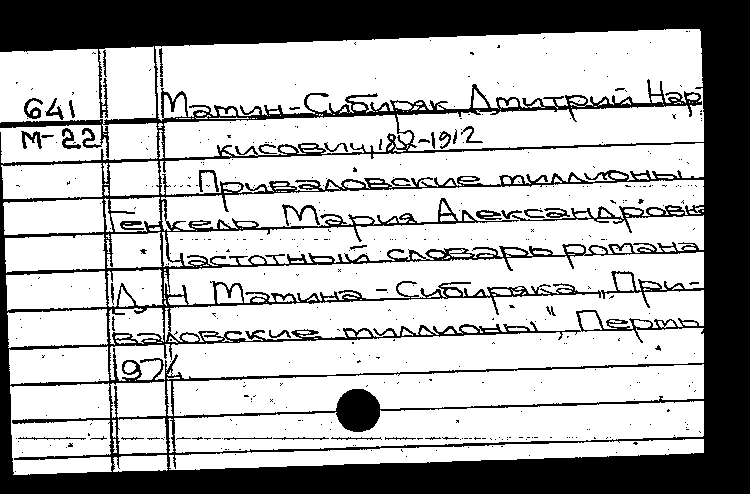 641 Мамин-Сибиряк, Дмитрий Нар
М-22 кисович, 1852-1912
Приваловские миллионы.
Генкель, Мария Александровн
Частотный словарь романа
Д. Н Мамина-Сибиряка „При-
валовские миллионы", Пермь,
1974